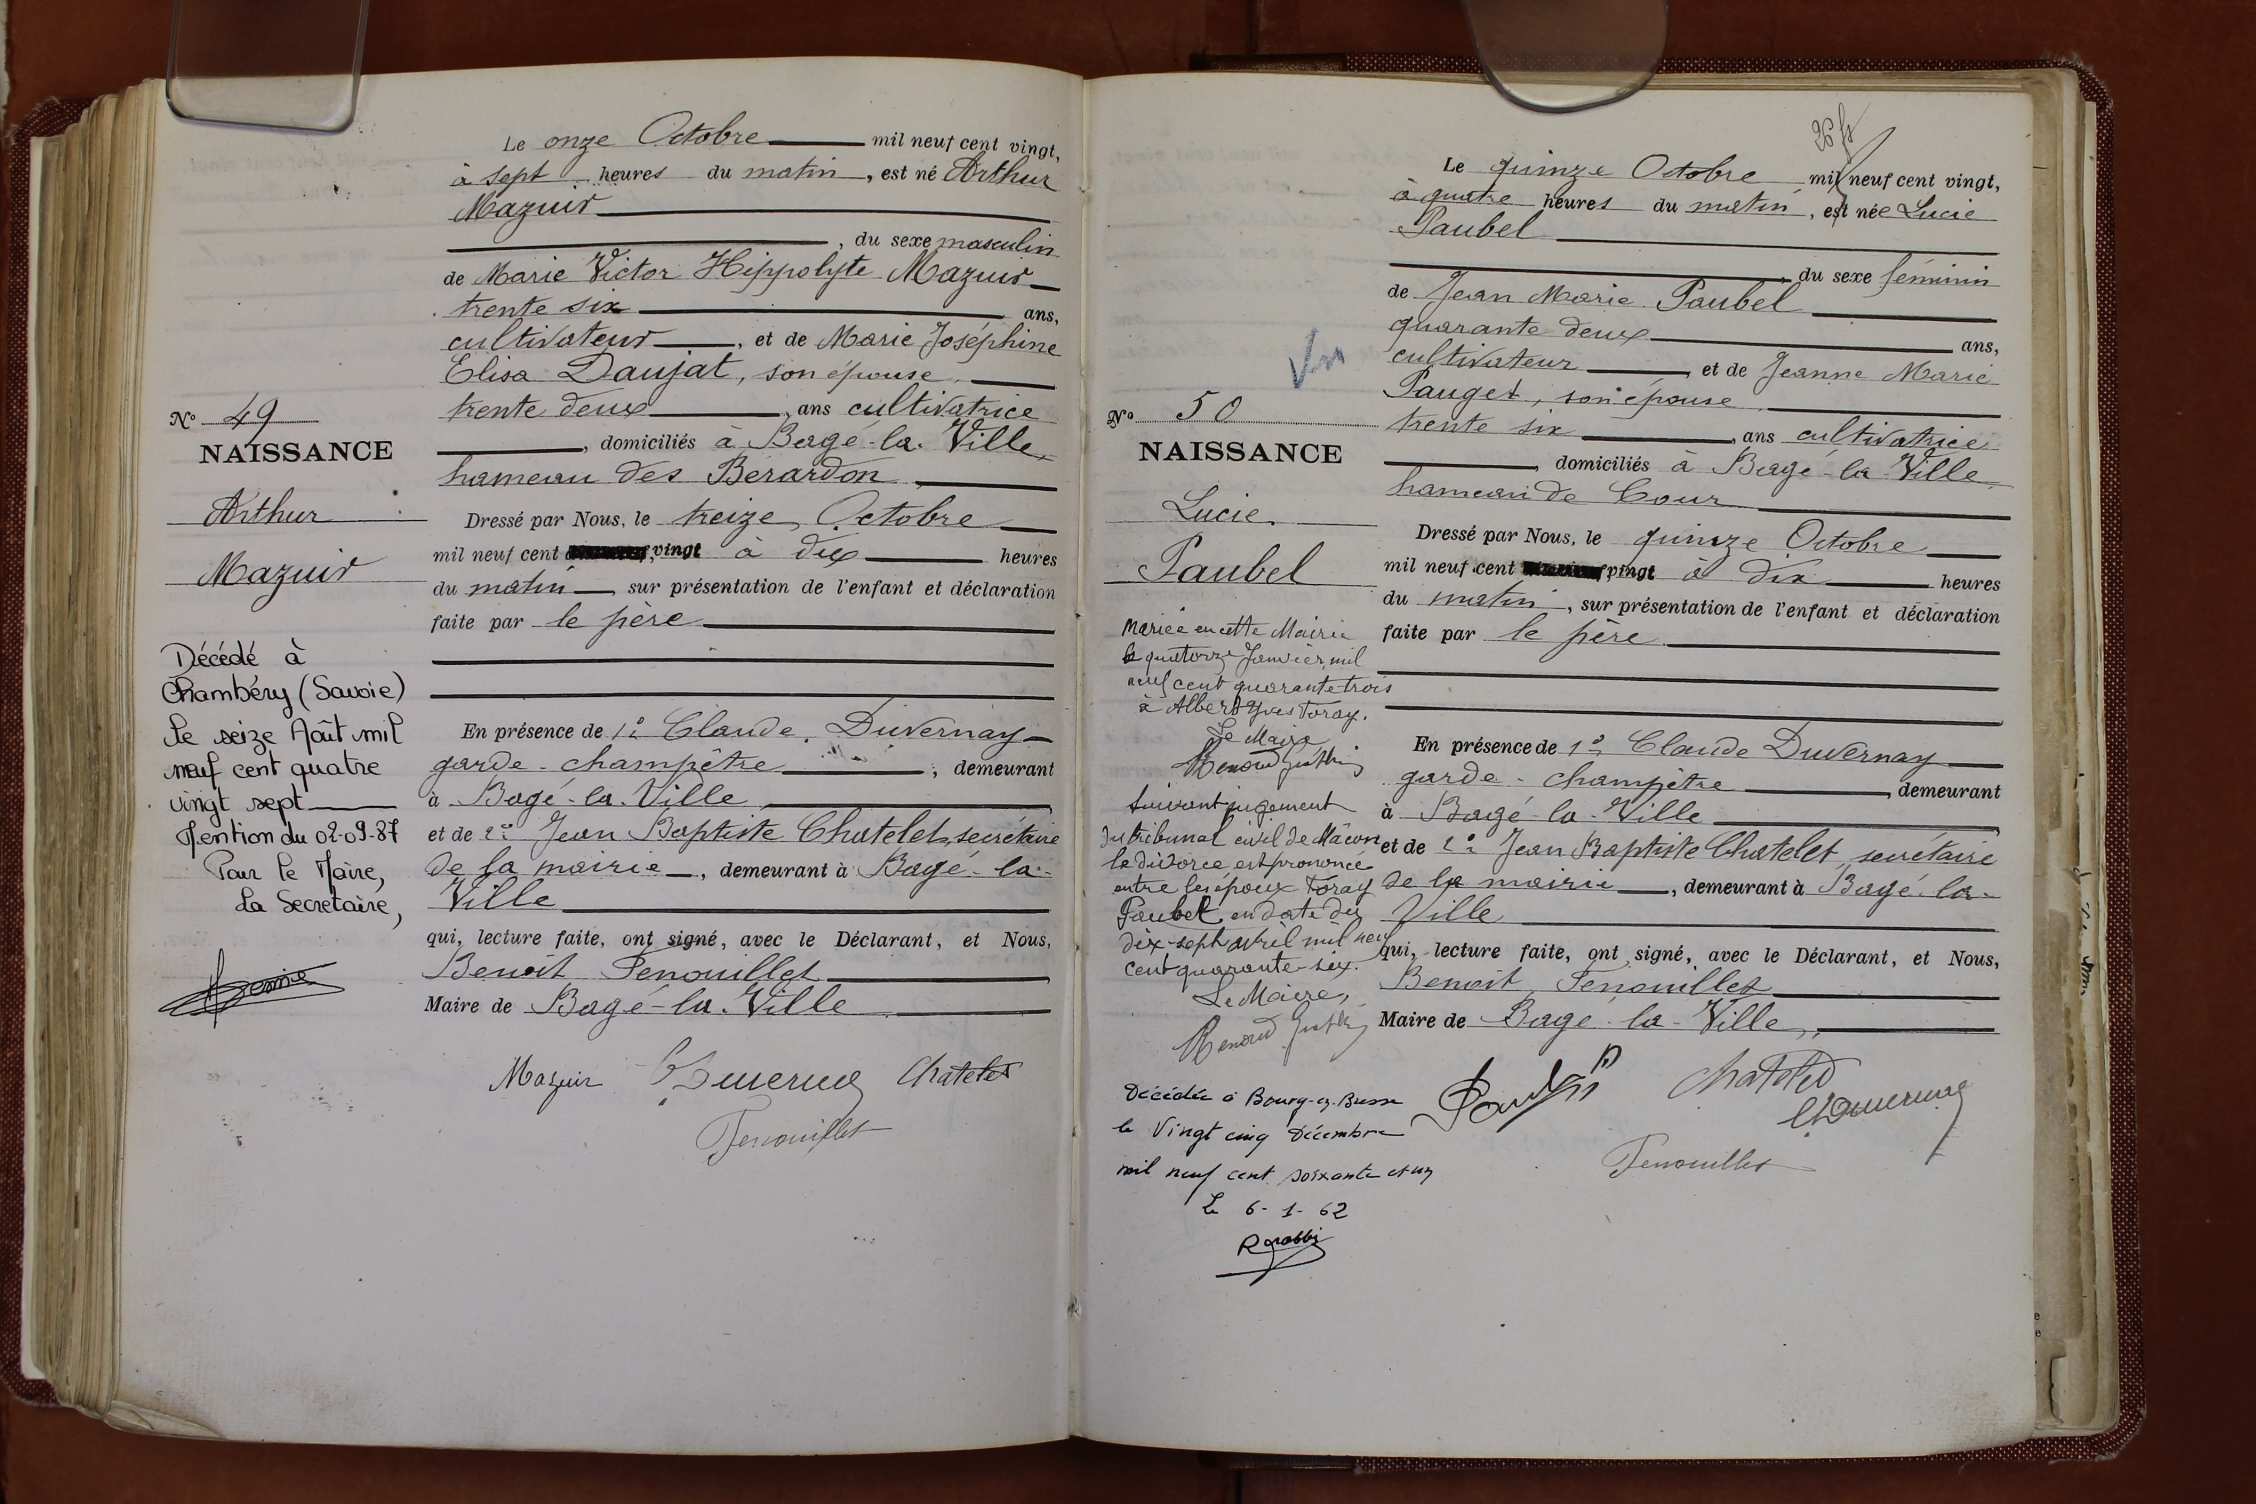 Le onze Octobre mil neuf cent vingt,
à sept heures du matin, est né Arthur
Mazuir
, du sexe masculin
de Marie Victor Hippolyte Mazuir
trente six ans,
cultivateur, et de Marie Joséphine
Elisa Daujat, son épouse,
trente deux, ans cultivatrice
, domiciliés à Bagé-la-Ville,
hameau des Berardon,
Dressé par Nous, le treize Octobre
mil neuf cent vingt à dix heures
du matin, sur présentation de l'enfant et déclaration
faite par le père
En présence de 1° Claude Duvernay
garde-champêtre, demeurant
à Bagé-la-Ville,
et de 2° Jean Baptiste Chatelet, secrétaire
de la mairie, demeurant à Bagé-la-
Ville
qui, lecture faite, ont signé, avec le Déclarant, et Nous,
Benoît Fenouillet,
Maire de Bagé-la-Ville
Mazuir Duvernay Chatelet
Fenouillet
N° 49
NAISSANCE
Arthur
Mazuir
Décédé à
Chambéry (Savoie)
le seize Août mil
neuf cent quatre
vingt sept
Mention du 02-09-87
Pour le Maire,
La Secretaire,
26 fs
Le quinze Octobre mil neuf cent vingt,
à quatre heures du matin, est née Lucie
Paubel
, du sexe féminin
de Jean Marie Paubel
quarante deux ans,
cultivateur, et de Jeanne Marie
Pauget, son épouse
trente six, ans cultivatrice
, domiciliés à Bagé-la-Ville,
hameau de Cour
Dressé par Nous, le quinze Octobre
mil neuf cent vingt à dix heures
du matin, sur présentation de l'enfant et déclaration
faite par le père
En présence de 1° Claude Duvernay
garde-champêtre, demeurant
à Bagé-la-Ville,
et de 2° Jean Baptiste Chatelet, secrétaire
de la mairie, demeurant à Bagé-la-
Ville
qui, lecture faite, ont signé, avec le Déclarant, et Nous,
Benoît Fenouillet
Maire de Bagé-la-Ville,
Chatelet
Duvernay
Fenouillet
Vu
N° 50
NAISSANCE
Lucie
Paubel
Mariée en cette Mairie
le quatorze Janvier mil
neuf cent quarante trois
à Albert Yves Foray.
Le Maire
Suivant jugement
du tribunal civil de Mâcon
le divorce est prononcé
entre les époux Foray
Paubel en date du
dix-sept avril mil neuf
cent quarante-six.
Le Maire,
Décédée à Bourg-en-Bresse
le Vingt cinq Décembre
mil neuf cent soixante et un
Le 6-1-62